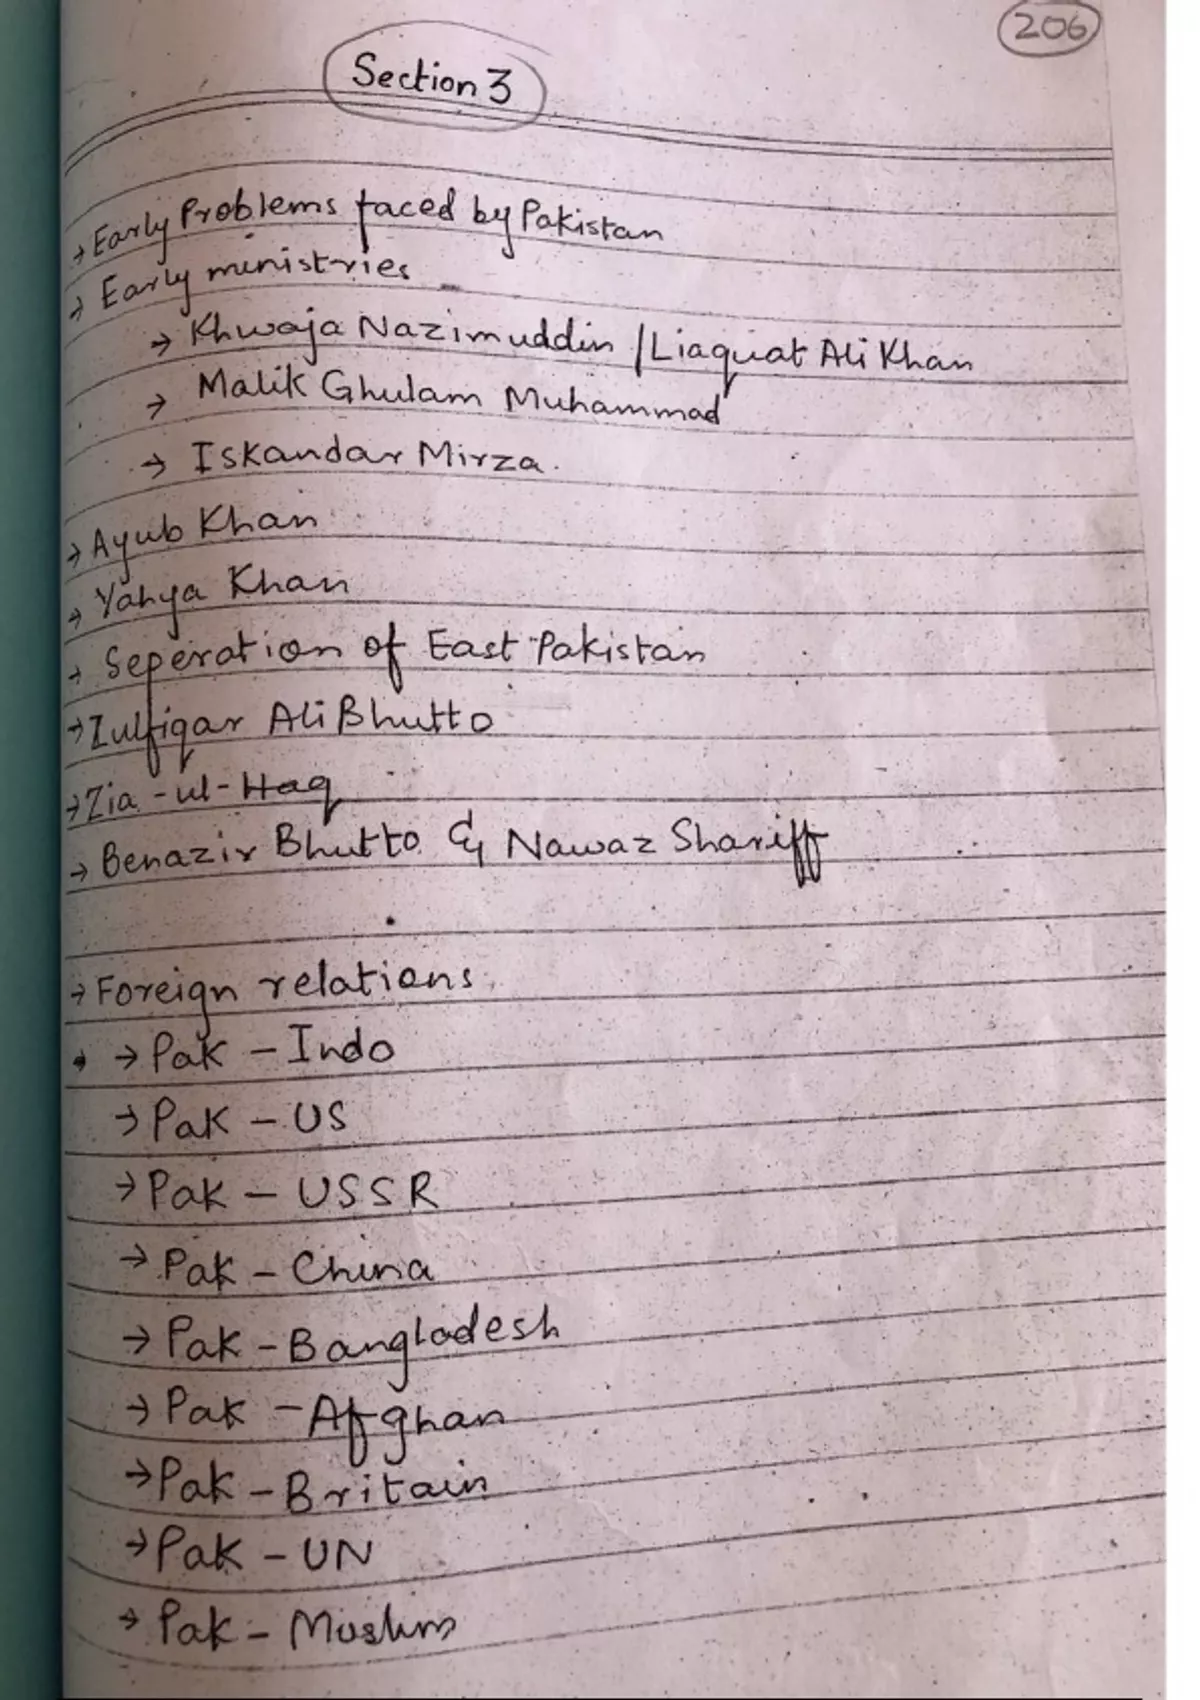 206
Section 3
→ Early Problems faced by Pakistan
→ Early ministries
→ Khwaja Nazimuddin / Liaquat Ali Khan
→ Malik Ghulam Muhammad
→ Iskandar Mirza.
→ Ayub Khan
→ Yahya Khan
→ Seperation of East Pakistan
→ Zulfiqar Ali Bhutto
→ Zia-ul-Haq
→ Benazir Bhutto & Nawaz Shariff
→ Foreign relations
→ Pak - Indo
→ Pak - US
→ Pak - USSR
→ Pak - China
→ Pak - Bangladesh
→ Pak - Afghan
→ Pak - Britain
→ Pak - UN
→ Pak - Muslim